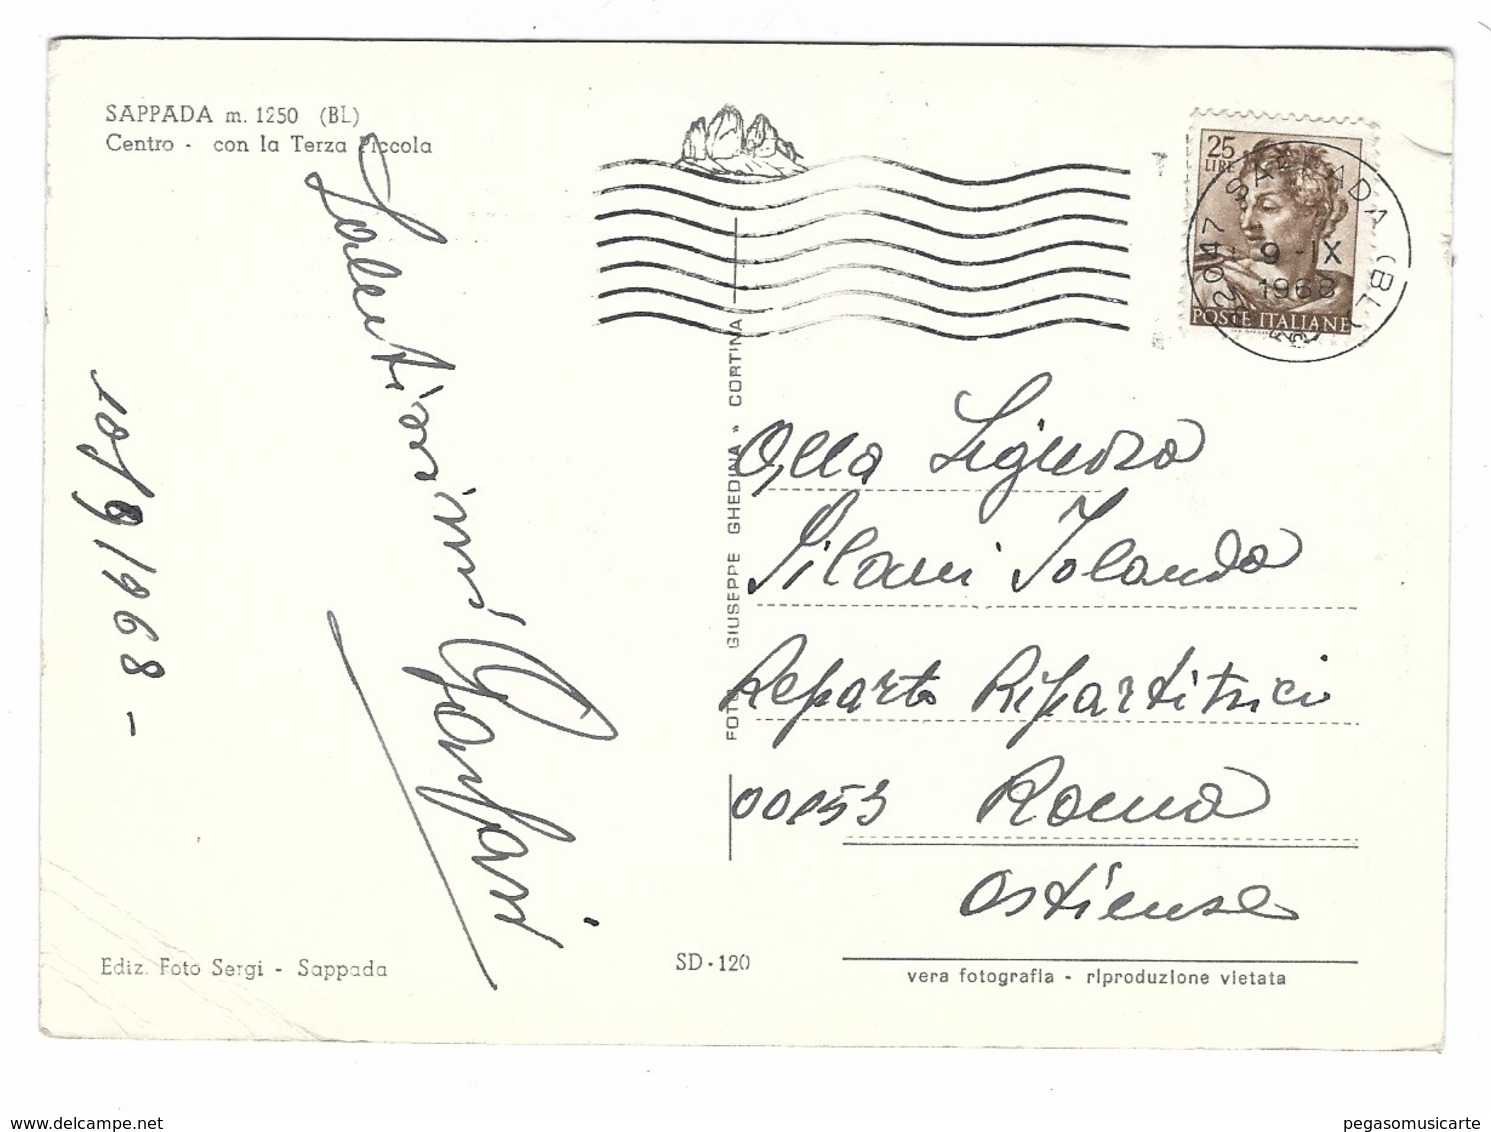 SAPPADA m. 1250 (BL)
Centro - con la Terza Piccola
25
LIRE
32047 SAPPADA (BL)
9 -IX
1968
POSTE ITALIANE
Salutissimi
10/9/1968 -
FOTO « GIUSEPPE GHEDINA » CORTINA
Alla Signora
Silani Iolanda
Reparto Ripartitrici
00153 Roma
Ostiense
Ediz. Foto Sergi - Sappada
SD-120
vera fotografia - riproduzione vietata
www.delcampe.net
pegasomusicarte